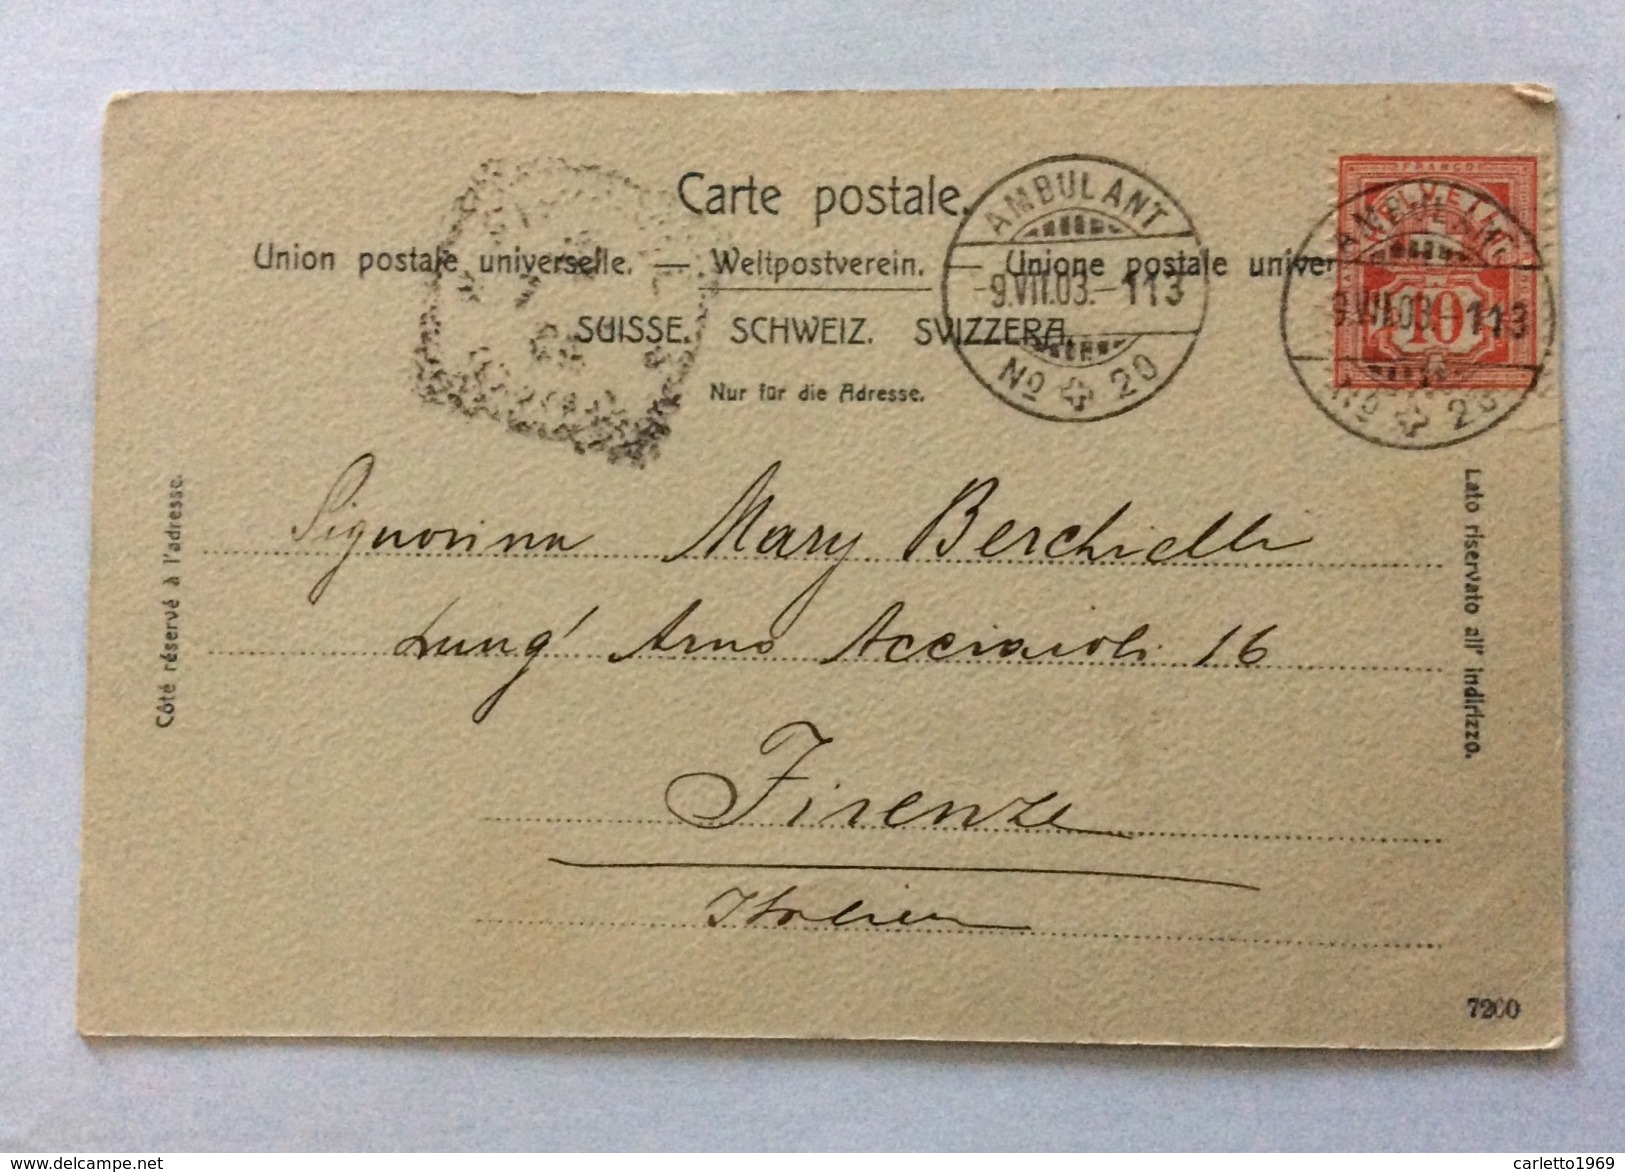 Carte postale.
Union postale universelle. — Weltpostverein. — Unione postale univer
SUISSE. SCHWEIZ. SVIZZERA.
Nur für die Adresse.
AMBULANT
-9.VII.03.-113
No 20
FRANCO
HELVETIA
10
AMBULANT
-9.VII.03.-113
No 20
Côté réservé à l'adresse.
Lato riservato all' indirizzo.
Signorina Mary Berchielli
Lung' Arno Acciaioli 16
Firenze
Italien
7260
delcampe.net
carletto1969